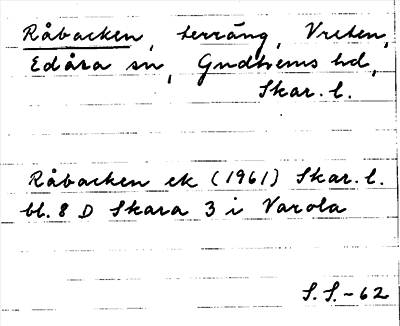 Råbacken, terräng, Vreten,
Edåsa sn, Gudhems hd,
Skar. l.
Råbacken ek (1961) Skar. l.
bl. 8 D Skara 3 i Varola
S.S.-62